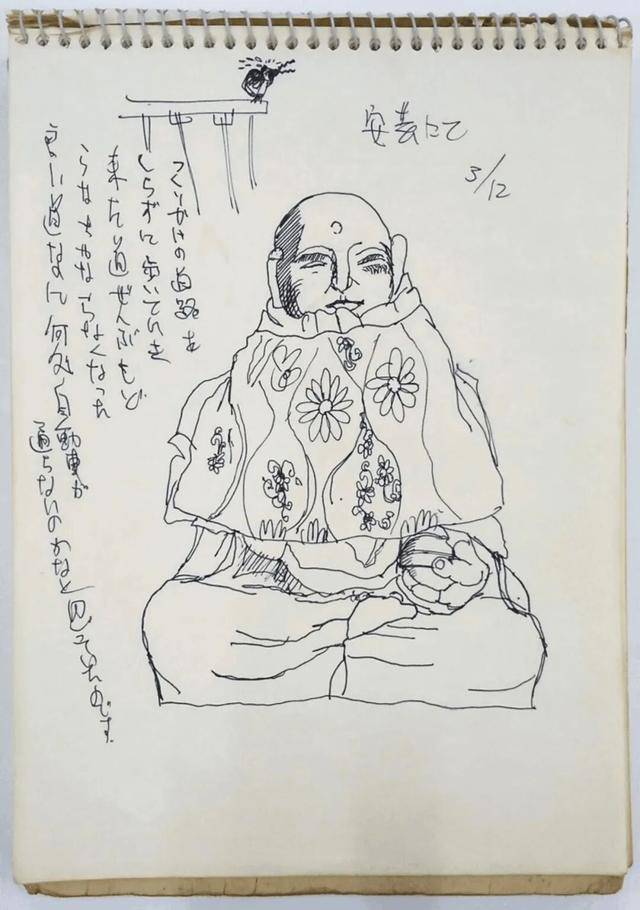 安芸にて
3/12
つくりかけの道路を
しらずに歩いていき
来たい道ぜんぶもど
らなちゃならなくなった
良い道なのに何処自動車が
通らないのかなと思っていたのです。